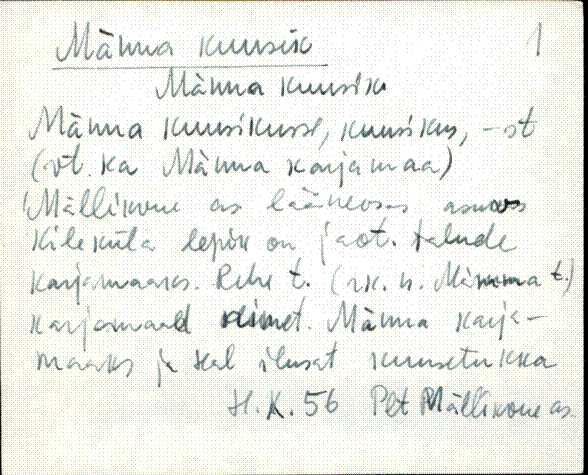 Männa kuusik 1
Männa kuusiku
Männa kuusikusse, kuusikus, -st
(vt. ka Männa karjamaa)
Mällikvere as lääneosas asuvas
Kileküla lepik on jaot. talude
karjamaaks. Rehe t. (rk. n. Männa t.)
karjamaad nimet. Männa karja-
maaks ja sel ilusat kuusetukka
H.K. 56 Plt Mällikvere as.